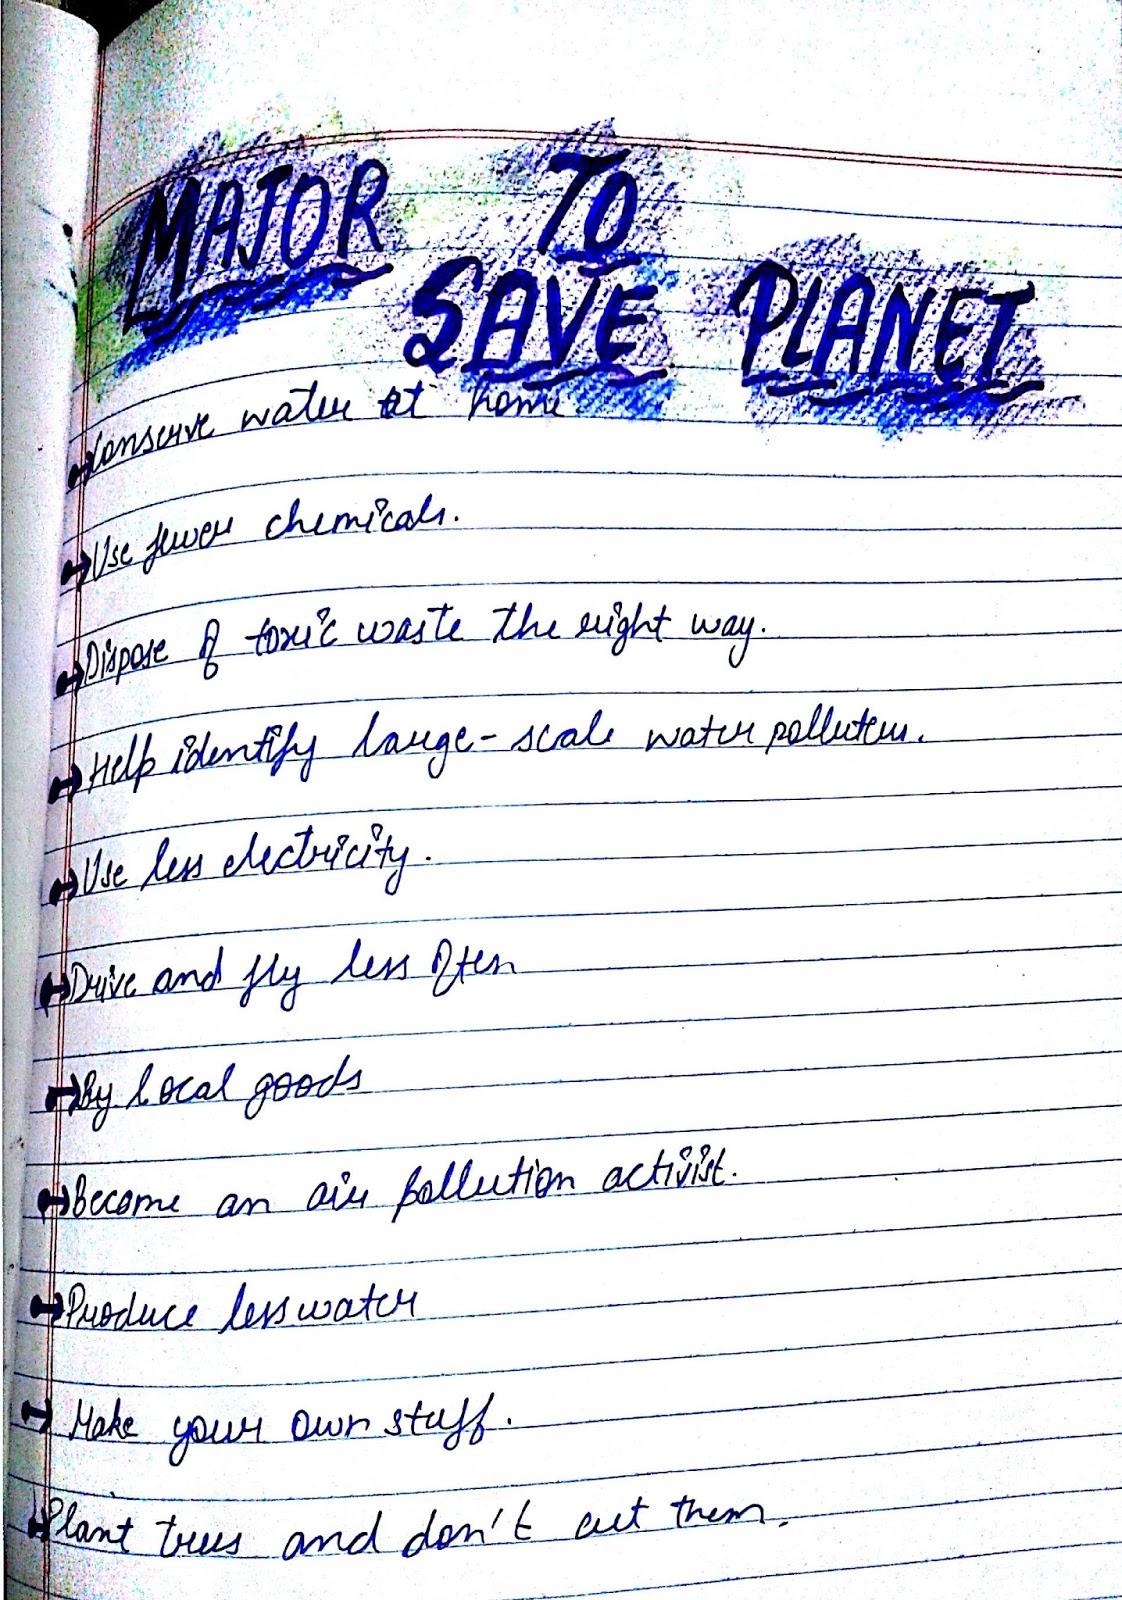 MAJOR TO
SAVE PLANET
Conserve water at home
Use fewer chemicals.
Dispose of toxic waste the right way.
Help identify large-scale water polluters.
Use less electricity.
Drive and fly less often
By local goods
Become an air pollution activist.
Produce less water
Make your own stuff.
Plant trees and don't cut them.